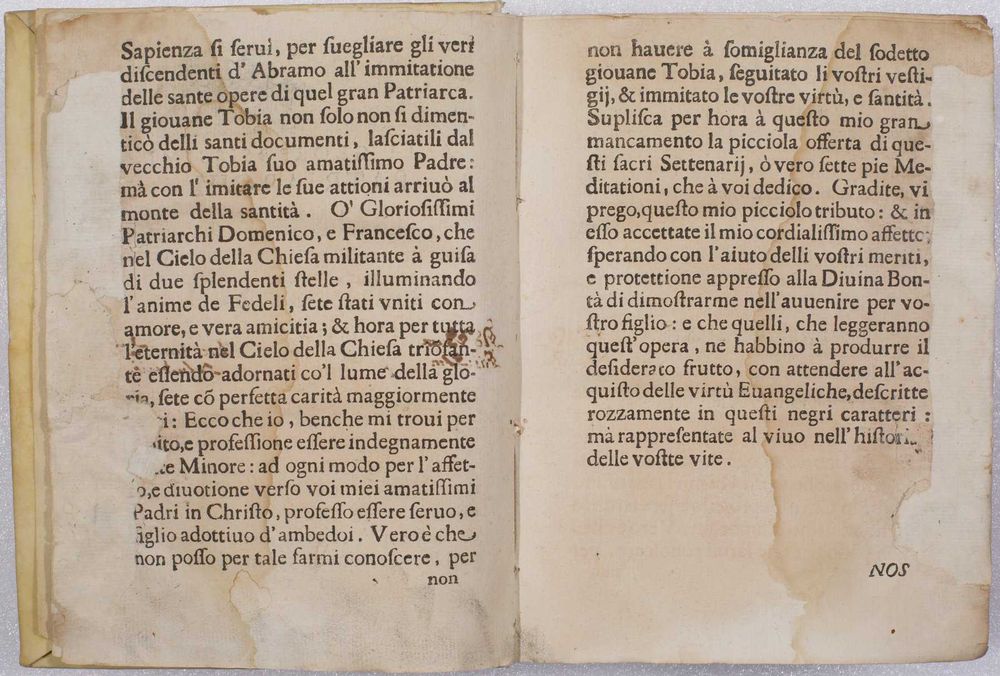 Sapienza si serui, per suegliare gli veri
discendenti d' Abramo all' immitatione
delle sante opere di quel gran Patriarca.
Il giouane Tobia non solo non si dimen-
ticò delli santi documenti, lasciatili dal
vecchio Tobia suo amatissimo Padre:
mà con l' imitare le sue attioni arriuò al
monte della santità. O' Gloriosissimi
Patriarchi Domenico, e Francesco, che
nel Cielo della Chiesa militante à guisa
di due splendenti stelle, illuminando
l'anime de Fedeli, sete stati vniti con
amore, e vera amicitia; & hora per tutta
l'eternità nel Cielo della Chiesa triofan-
te essendo adornati co'l lume della glo-
ria, sete cõ perfetta carità maggiormente
Ecco che io, benche mi troui per
e professione essere indegnamente
Minore: ad ogni modo per l' affet-
o, e diuotione verso voi miei amatissimi
Padri in Christo, professo essere seruo, e
figlio adottiuo d'ambedoi. Vero è che
non posso per tale farmi conoscere, per
non
non hauere à somiglianza del sodetto
giouane Tobia, seguitato li vostri vesti-
gij, & immitato le vostre virtù, e santità.
Suplisca per hora à questo mio gran
mancamento la picciola offerta di que-
sti sacri Settenarij, ò vero sette pie Me-
ditationi, che à voi dedico. Gradite, vi
prego, questo mio picciolo tributo: & in
esso accettate il mio cordialissimo affetto;
sperando con l'aiuto delli vostri meriti,
e protettione appresso alla Diuina Bon-
tà di dimostrarme nell'auuenire per vo-
stro figlio: e che quelli, che leggeranno
quest' opera, ne habbino à produrre il
desiderato frutto, con attendere all' ac-
quisto delle virtù Euangeliche, descritte
rozzamente in questi negri caratteri:
mà rappresentate al viuo nell' historia
delle vostte vite.
NOS